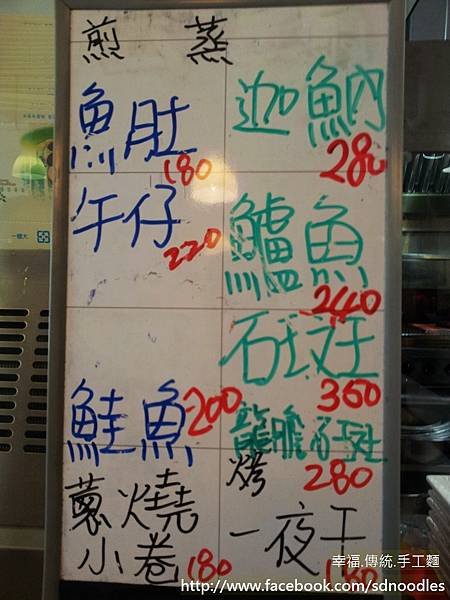 煎 蒸
魚肚 180
迦魶 280
午仔 220
鱸魚 240
石斑 360
鮭魚 200
龍膽石斑 280
蔥燒小卷 180
烤
一夜干 180
幸福.傳統.手工麵
http://www.facebook.com/sdnoodles